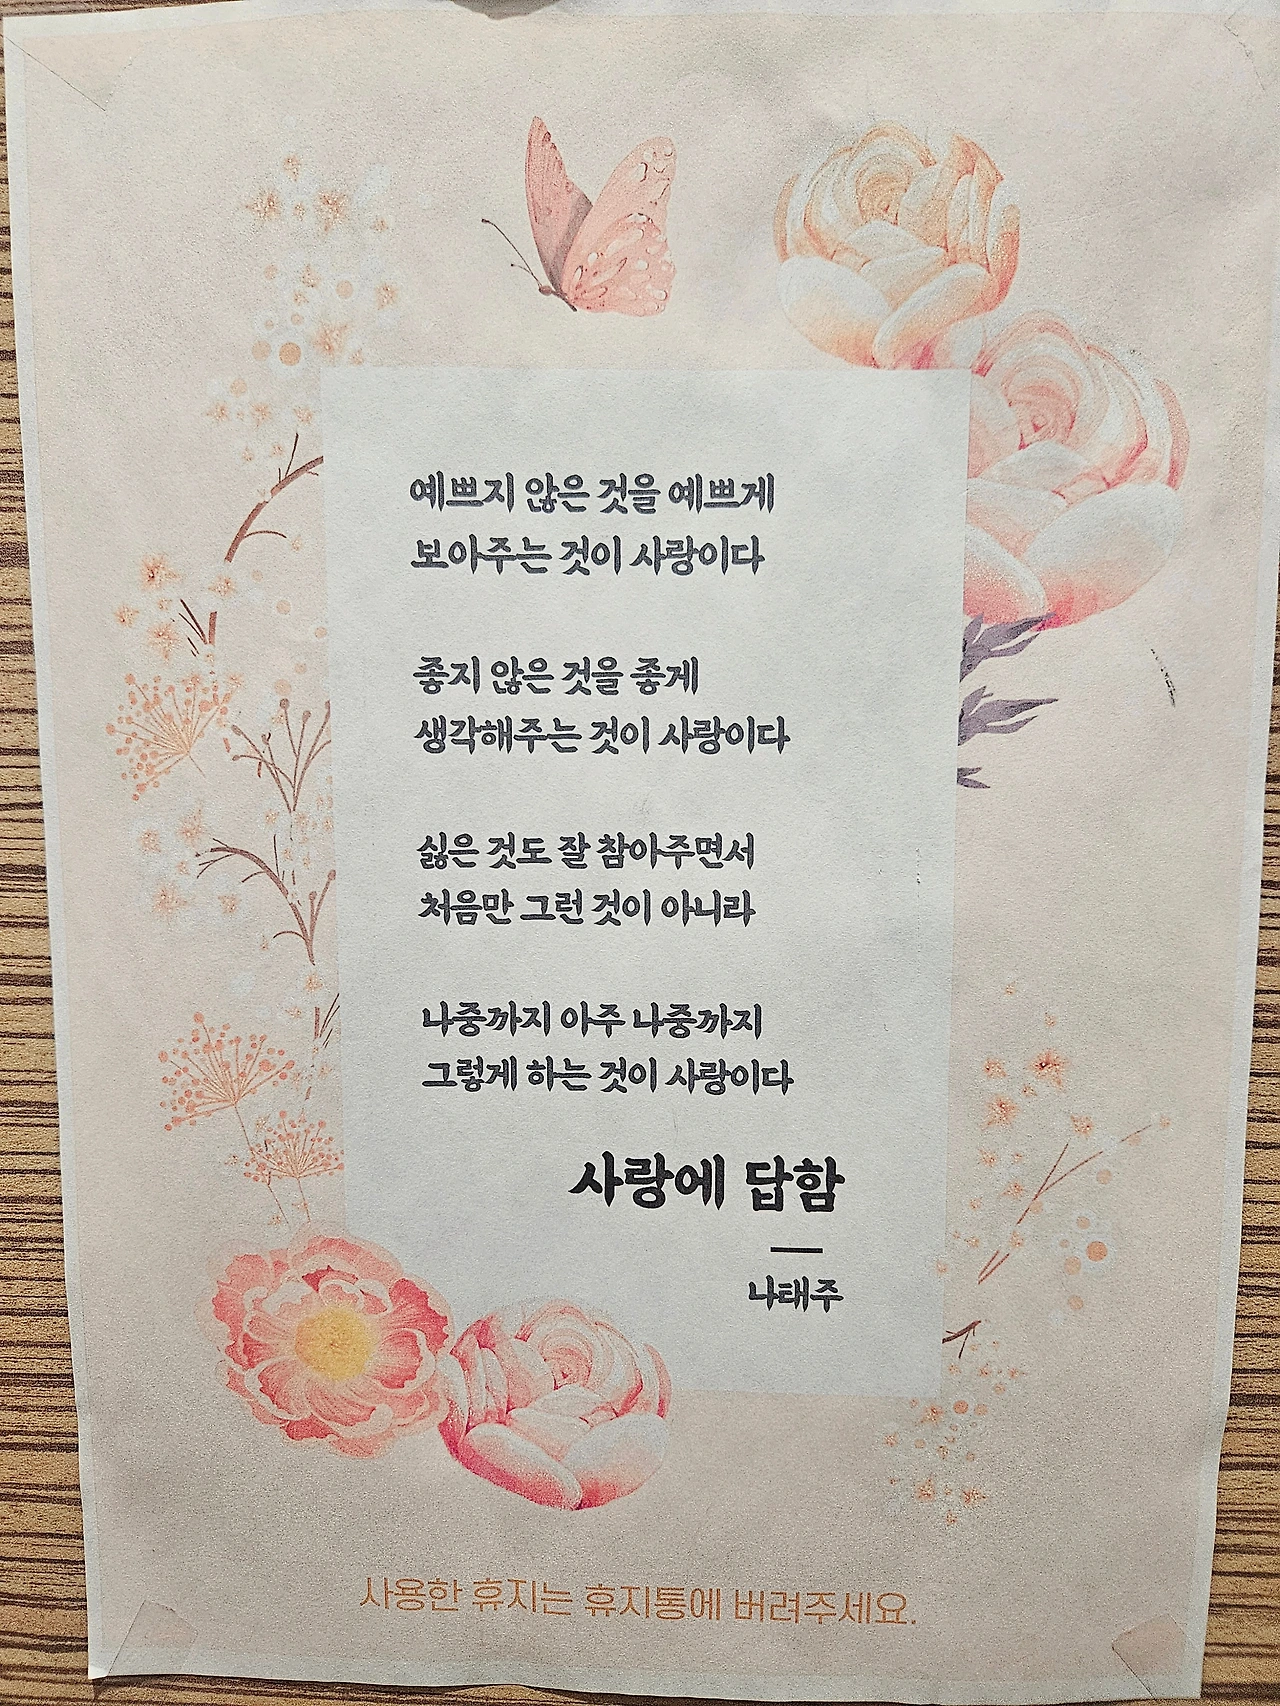 예쁘지 않은 것을 예쁘게
보아주는 것이 사랑이다
좋지 않은 것을 좋게
생각해주는 것이 사랑이다
싫은 것도 잘 참아주면서
처음만 그런 것이 아니라
나중까지 아주 나중까지
그렇게 하는 것이 사랑이다
사랑에 답함
나태주
사용한 휴지는 휴지통에 버려주세요.